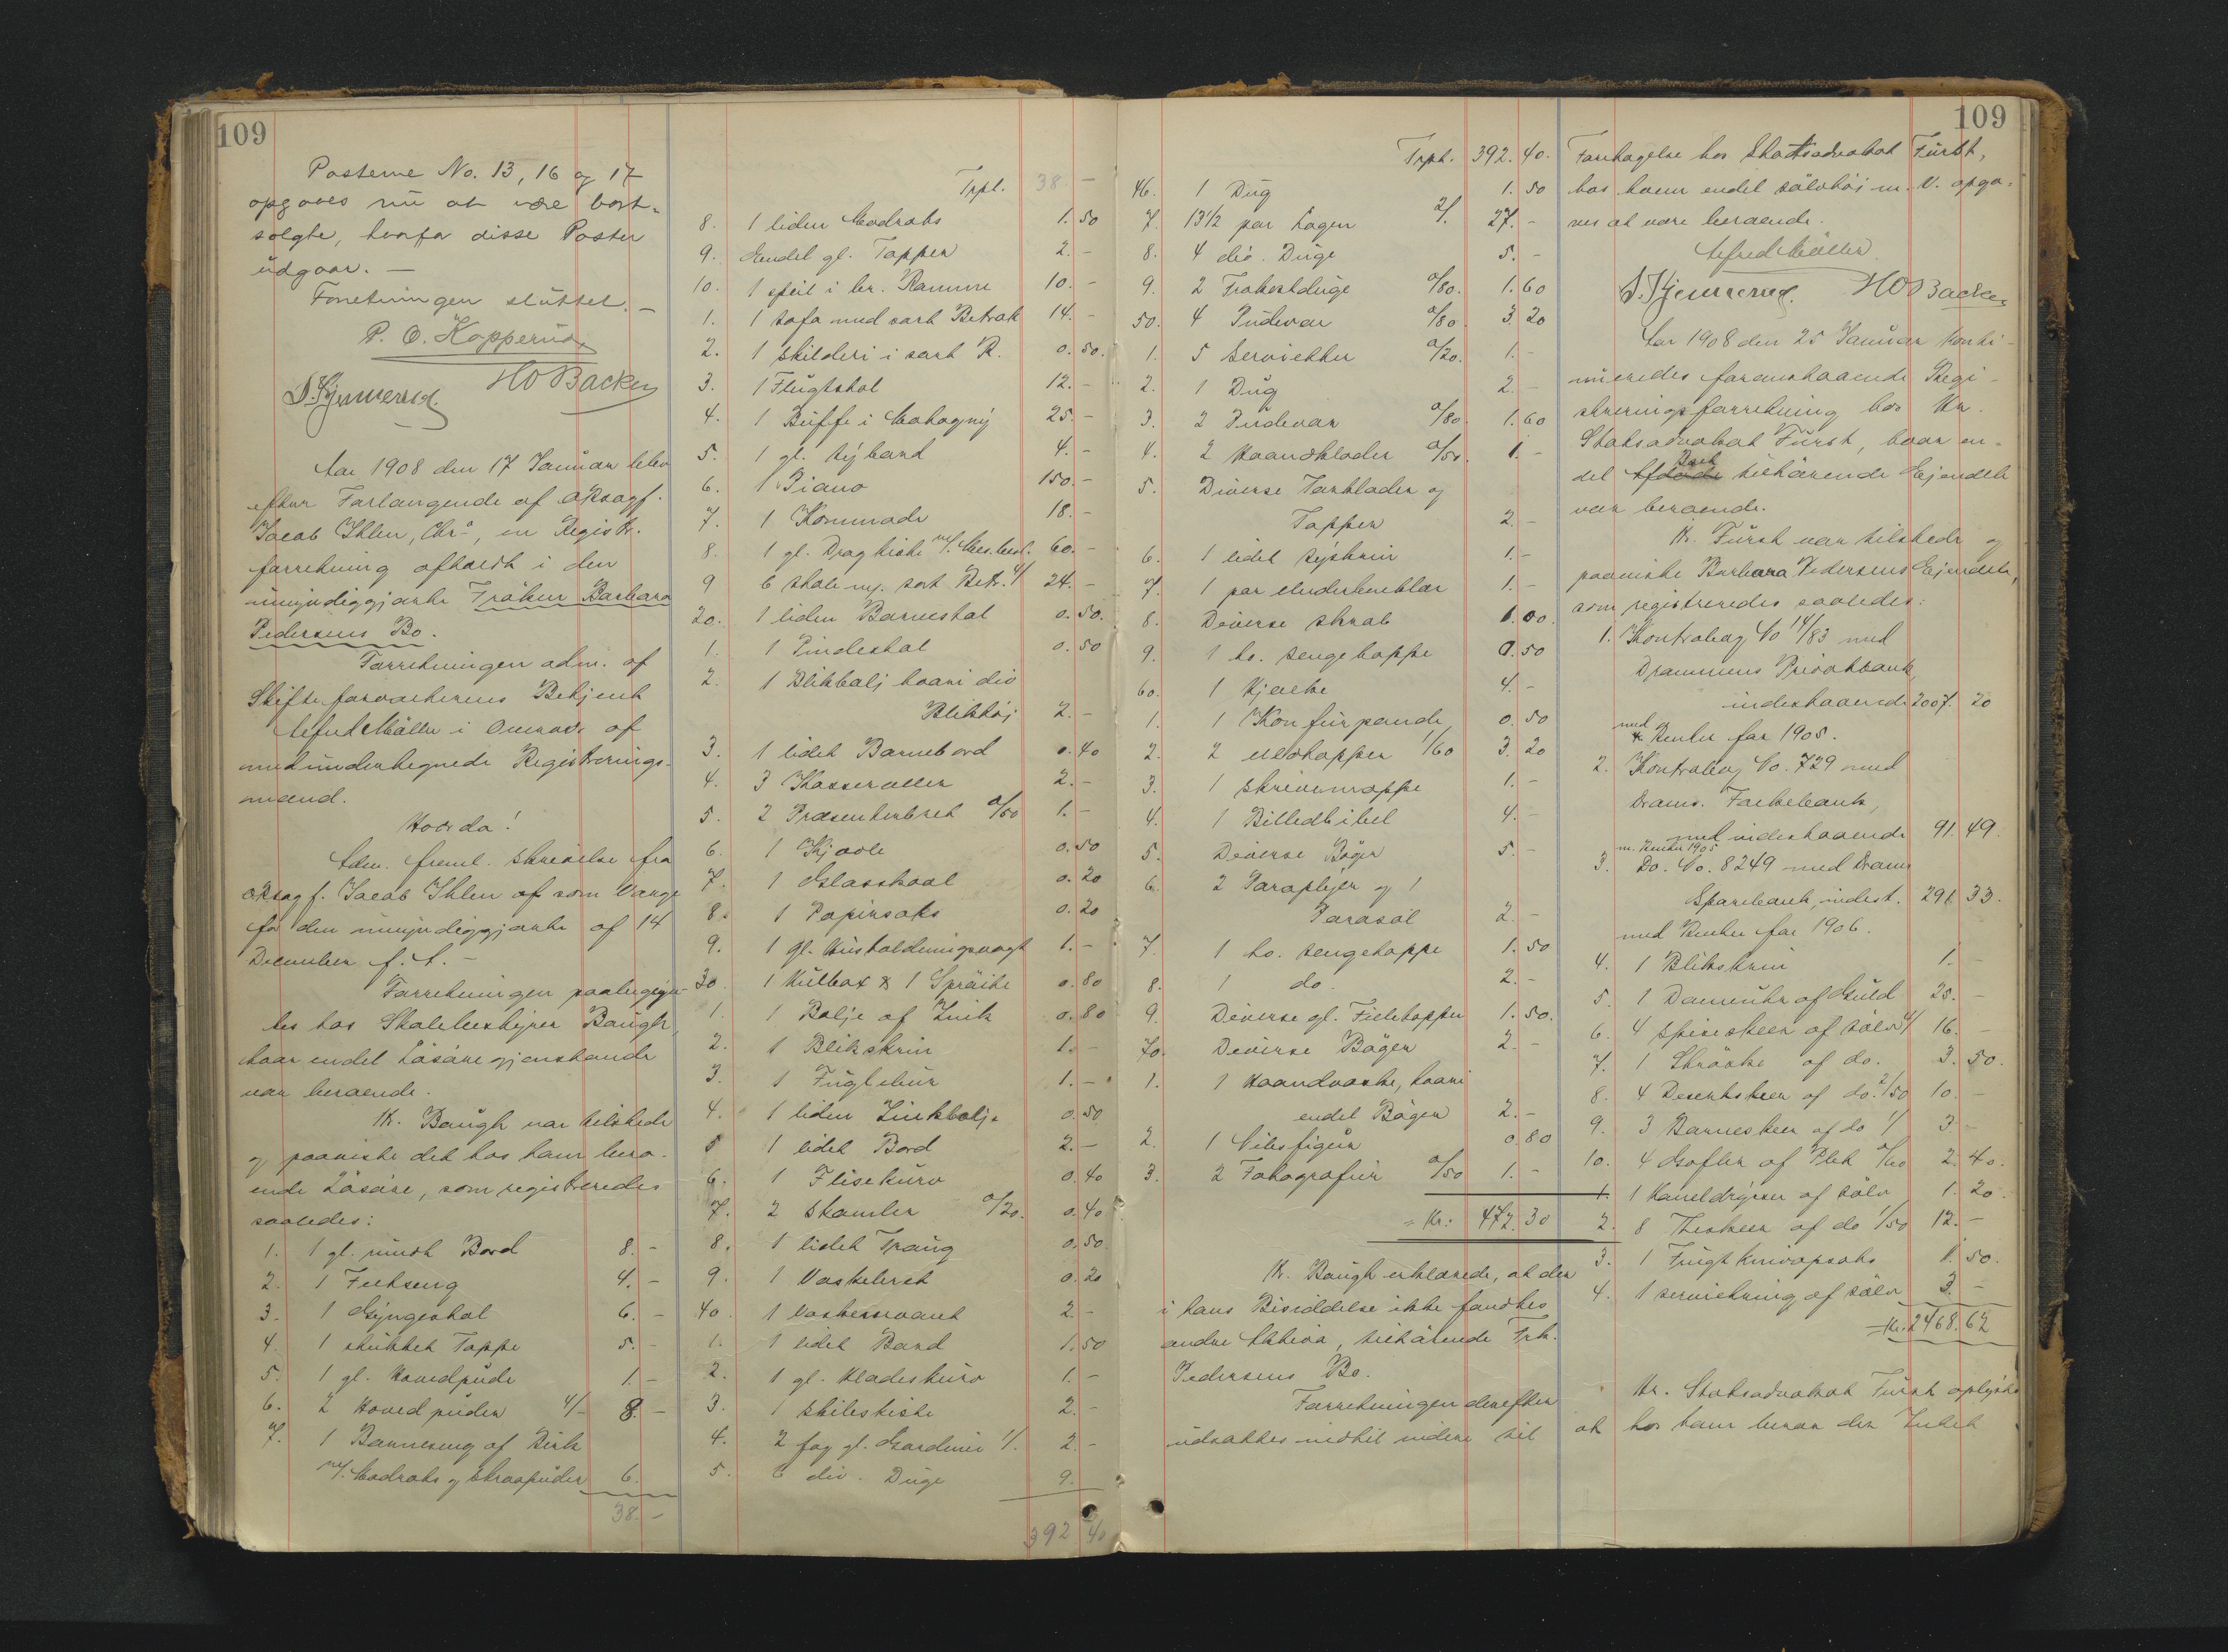 109
Posterne No. 13, 16 og 17
opgaves nu at være bort-
solgte, hvorfor disse Poster
udgaar. —
Forretningen sluttet. —
P. O. Kopperud
HO Backe
Aar 1908 den 17 Januar blev
efter Forlangende af oRsagf.
Jacob Ihlen, Chr.a, en Registr.
forretning afholdt i den
umyndiggjorte Fröken Barbara
Pedersens Bo.
Forretningen adm. af
Skifteforvalterens Betjent
Alfred Möller i Overvær af
medundertegnede Registrerings-
mænd.
Hvorda!
Adm. freml. Skrivelse fra
oRsagf. Jacob Ihlen af som Værge
for den umyndiggjorte af 14
December f. A. —
Forretningen paabegyn-
tes hos Skolebestyrer Baugh,
hvor endel Lösöregjenstande
var beroende.
Hr. Baugh var tilstede
og paaviste det hos ham bero-
ende Lösöre, som registreredes
saaledes:
1. 1 gl. rundt Bord 8. -
2. 1 Feltseng 4. -
3. 1 Gyngestol 6. -
4. 1 slubbet Tæppe 5. -
5. 1 gl. Hovedpude 1. -
6. 2 Hovedpuder 4/- 8. -
7. 1 Barneseng af Birk
m/. Madrats og Skraapuder 6.
38. -
Trpt. 38. -
8. 1 liden Madrats 1. 50
9. Endel gl. Tæpper 2. -
10. 1 speil i br. Ramme 10. -
1. 1 sofa med sort Betræk 14. -
2. 1 skilderi i sort R. 0. 50.
3. 1 Flugtstol 12. -
4. 1 Büffe i Mahogny 25 -
5. 1 gl. Sybord 4. -
6. 1 Piano 150. -
7. 1 Kommode 18. -
8. 1 gl. Dragkiste m/. Mes.besl. 60. -
9 6 stole m. sort Betr. 4/ 24. -
20. 1 liden Barnestol 0. 50.
1. 1 Pindestol 0. 50
2. 1 Blikbalj hvori div
Bliktöi 2. -
3. 1 lidet Barnebord 0. 40
4. 3 Kasseroller 2. -
5. 2 Præsenterbret 0/50 1. -
6. 1 Kjole 0. 50
7. 1 Glasskaal 0. 20
8. 1 Papirsaks 0. 20
9. 1 gl. Husholdningsvægt 1. -
30. 1 Kulbox & 1 Spröite 0. 80
1. 1 Balje af Zink 0. 80
2. 1 Blikskrin 1. -
3. 1 Fuglebur 1. -
4. 1 liden Zinkbalje 0. 50
5 1 lidet Bord 2. -
6. 1 Flisekurv 0. 40
7. 2 Skamler 0/20. 0. 40
8. 1 lidet Traug 0. 50
9. 1 Vaskebret 0. 20
40. 1 Vaskeservant 2. -
1. 1 lidet Bord 1. 50
2. 1 gl. Klædeskurv 1. -
3. 1 skibskiste 2. -
4. 2 fag gl. Gardiner 1/. 2. -
5. 6 div. Duge 9.
392 40
109
Trpt. 392. 40.
46. 1 Dug 1. 50
7. 13 1/2 par Lagen 2/. 27. -
8. 4 div. Duge 5. -
9. 2 Frokostduge 0/80. 1. 60
50. 4 Pudevar 0/80. 3. 20
1. 5 Servietter 0/20. 1. -
2. 1 Dug 2. -
3. 2 Pudevar 0/80 1. 60
4. 2 Haandklæder 0/50. 1. -
5. Diverse Tørklæder og
Tæpper 2. -
6. 1 lidet Syskrin 1. -
7. 1 par Underbenklær 1. -
8. Diverse Skrab 1. 00.
9. 1 ho. sengetæppe 0. 50
60. 1 Kjæle 4. -
1. 1 Konfurpande 0. 50
2. 2 uldtæpper 1/60 3. 20
3. 1 skrivemappe 1. -
4. 1 Billedbibel 4. -
5. Diverse Böger 5. -
6. 2 Paraplyer og 1
Parasol 2. -
7. 1 ho. sengetæppe 1. 50
8. 1 do 2. -
9. Diverse gl. Filletæpper 1. 50.
70. Diverse Böger 2. -
1. 1 Haandvæske, hvori
endel Böger 2. -
2. 1 Gibsfigur 0. 80
3. 2 Fotografier 0/50 1. -
= Kr.: 472. 30
Hr. Baugh erklærede, at der
i hans Besiddelse ikke fandtes
andre Aktiva, tilhörende Frk.
Pedersens Bo.
Forretningen derefter
udsattes indtil videre til
Foretagelse hos Statsadvokat Fürst,
hos hvem endel sölvtöi m. v. opga-
ves at være beroende.
Alfred Möller
HO Backe
Aar 1908 den 25 Januar konti-
nueredes foranstaaende Regi-
streringsforretning hos Hr.
Statsadvokat Fürst, hvor en-
del Boet tilhörende Ejendele
var beroende.
Hr. Fürst var tilstede og
paaviste Barbara Pedersens Ejendele,
som registreredes saaledes:
1. Kontrabog No 14/83 med
Drammens Privatbank,
indestaaende 2007. 20
med Renter for 1905.
2. Kontrabog No. 729 med
Drams. Folkebank,
med indestaaende 91. 49.
m. Renter 1905
3. Do. No. 8249 med Drams
Sparebank, indest. 291. 33.
med Renter for 1906.
4. 1 Blikskrin 1. -
5. 1 Dameuhr af Guld 25. -
6. 4 Spiseskeer af Sölv 4/ 16. -
7. 1 Ströske af do. 3. 50.
8. 4 Desertskeer af do. 2/50 10. -
9. 3 Barneskeer af do 1/ 3 -
10. 4 Gafler af Plet 0/60 2. 40.
1. 1 Kaneldrysser af Sölv 1. 20.
2. 8 Theskeer af do 1/50 12. -
3. 1 Frugtknivopsats 1. 50.
4. 1 serviettring af sölv 3. -
= Kr. 2468. 62
Hr. Statsadvokat Fürst oplyste
at hos ham beror der Intet